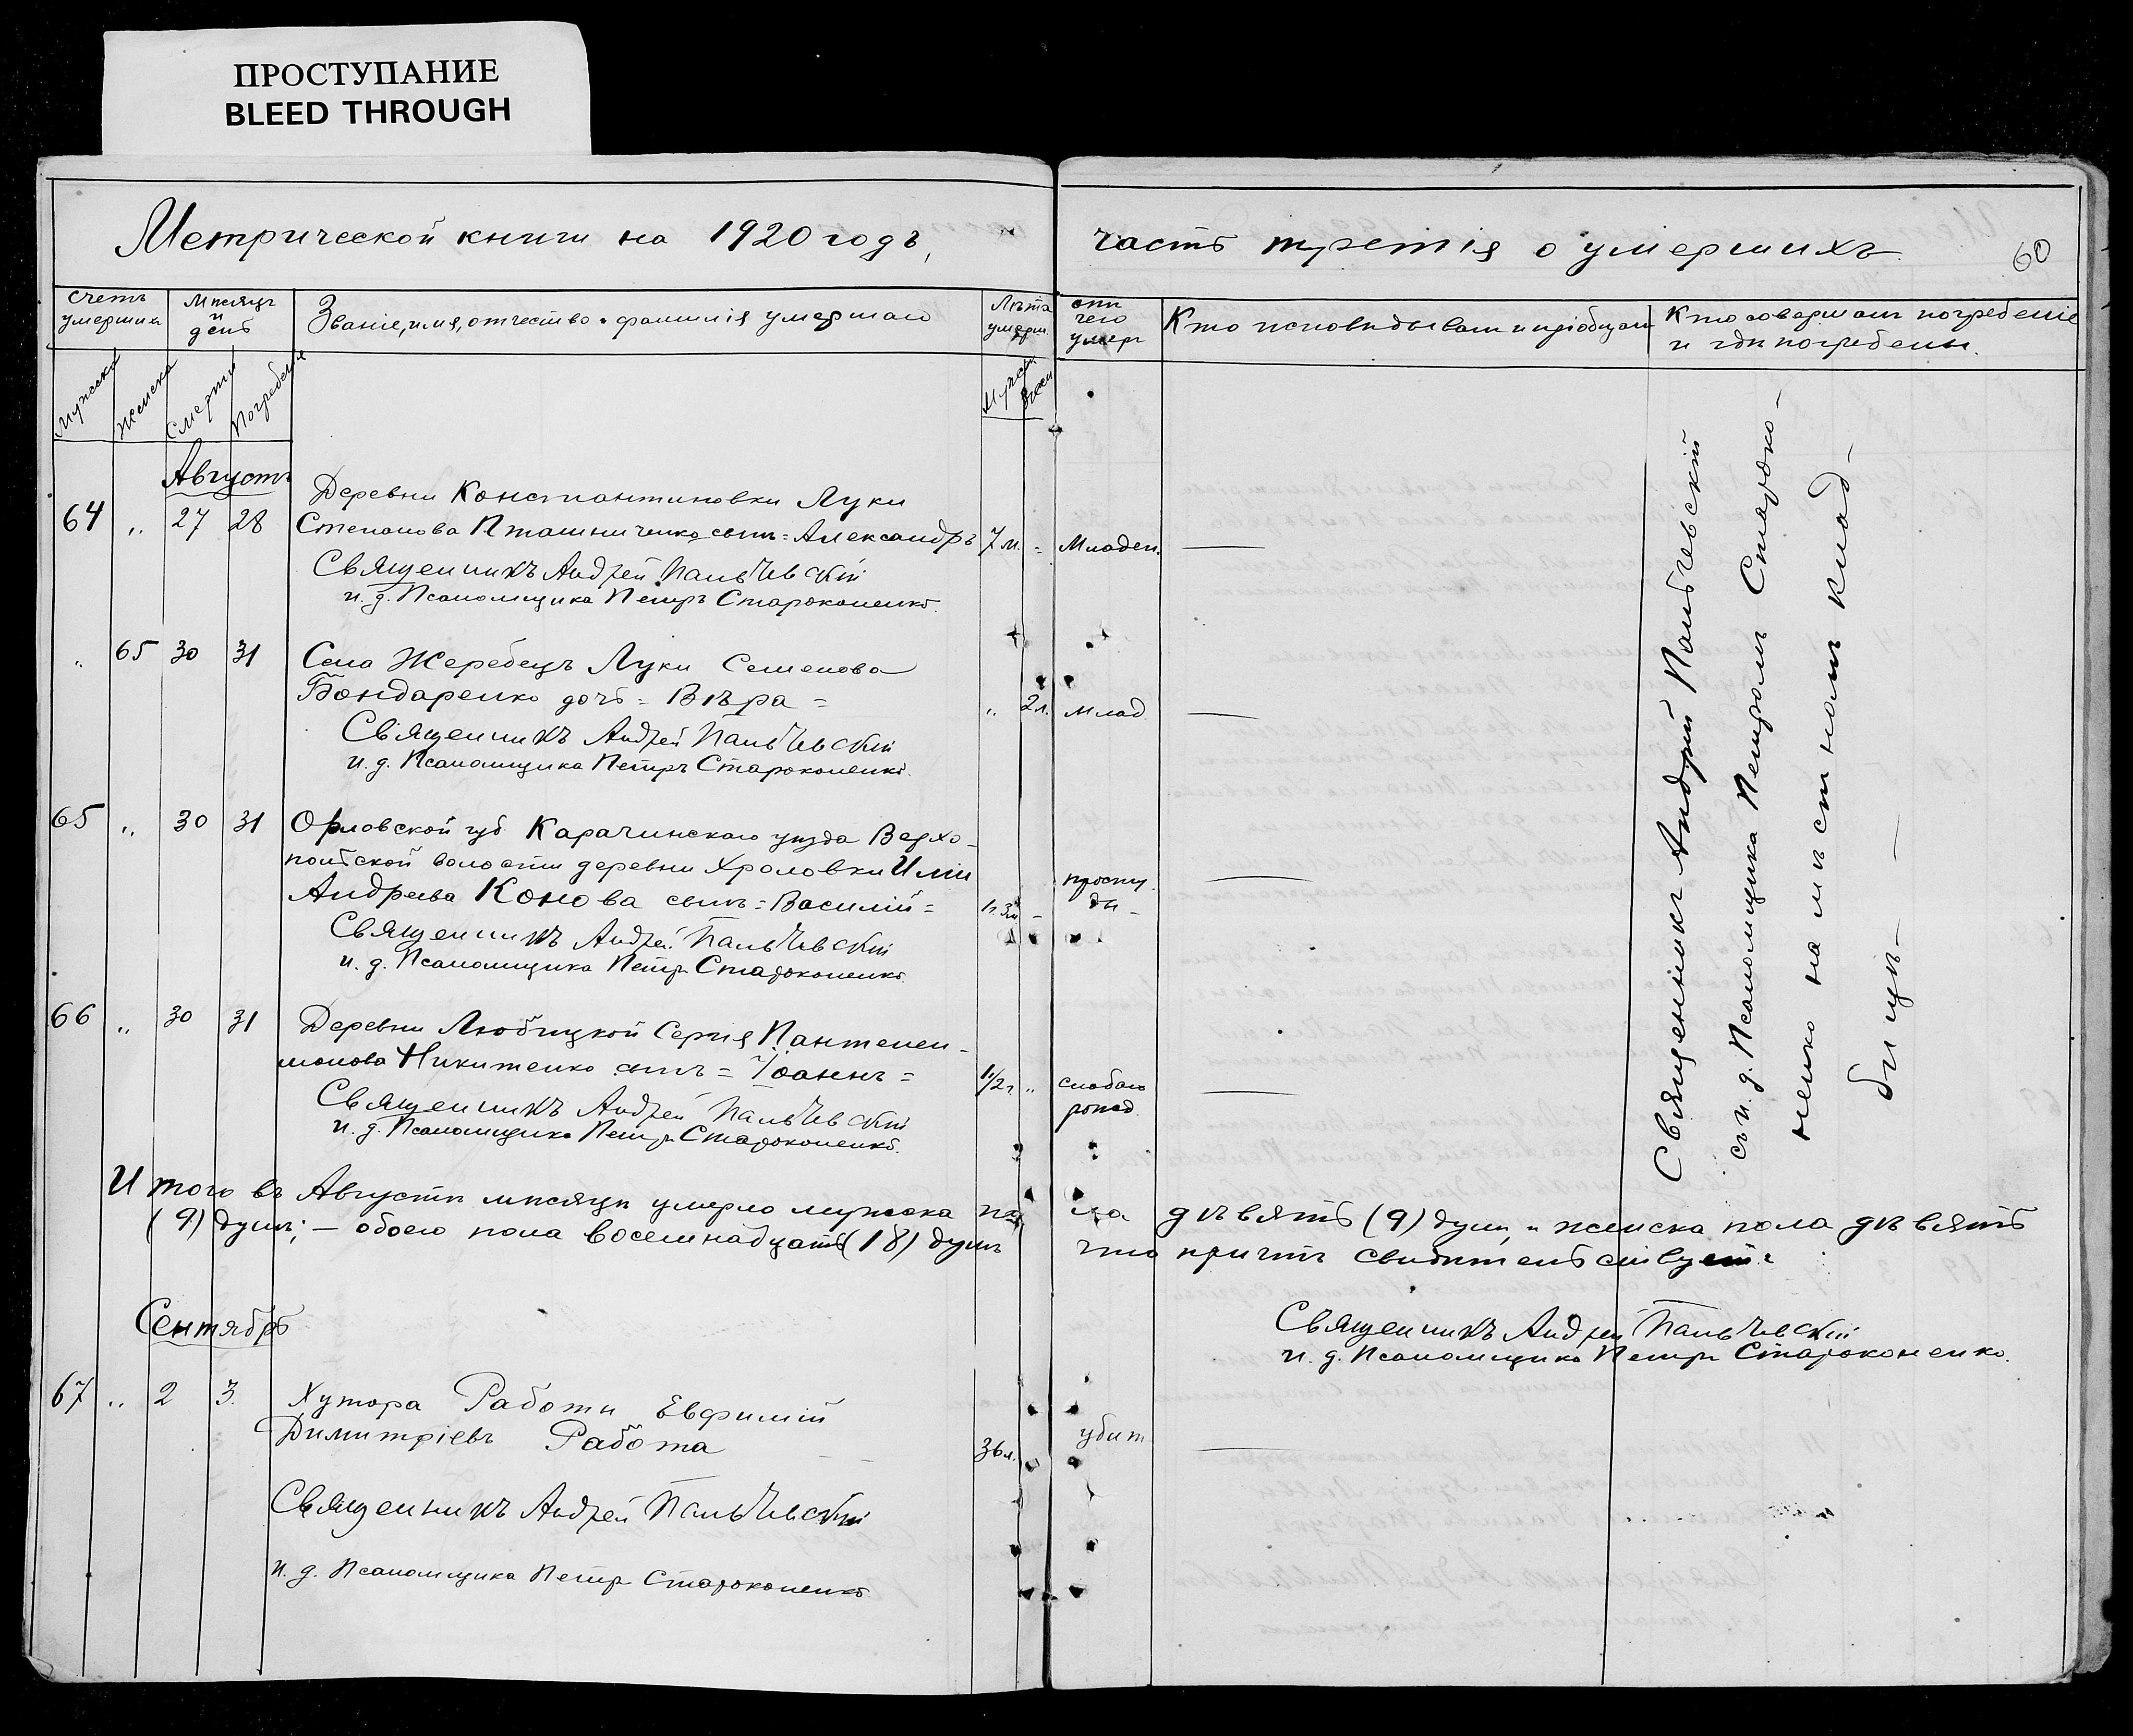 ПРОСТУПАНИЕ
BLEED THROUGH
Метрической книги на 1920 годъ,
часть третія о умершихъ
60
Счетъ умершихъ
Мѣсяцъ и день
Званіе, имя, отчество и фамилія умершаго
Лѣта умерш.
отъ чего умеръ
Кто исповѣдывалъ и пріобщалъ
Кто совершалъ погребеніе
и гдѣ погребены.
Мужска
Женска
Смерти
Погребенія
Мужск
Женск
Августъ
Деревни Константиновки Луки
64 „ 27 28 Степанова Пташниченко сынъ = Александръ 7 м. = Младен. —
Священникъ Андрей Пальчевскій
и. д. Псаломщика Петръ Староконенко.
„ 65 30 31 Села Жеребецъ Луки Семенова
Бондаренко дочь = Вѣра = „ 2 л. Млад. —
Священникъ Андрей Пальчевскій
и. д. Псаломщика Петръ Староконенко.
65 „ 30 31 Орловской губ. Карачинскаго уѣзда Верхо-
польской волости деревни Хроловки Иліи
Андреева Конова сынъ = Василій = просту-
ды —
Священникъ Андрей Пальчевскій
и. д. Псаломщика Петръ Староконенко.
66 „ 30 31 Деревни Любицкой Сергія Пантелей-
монова Никитенко сынъ = Іоаннъ = 1 1/2 г. „ слабаго
рожд. —
Священникъ Андрей Пальчевскій
и. д. Псаломщика Петръ Староконенко.
Священникъ Андрей Пальчевскій
съ и. д. Псаломщика Петромъ Староко-
ненко на мѣстномъ клад-
бищѣ —
Итого въ Августѣ мѣсяцѣ умерло мужска пола дѣвять (9) душъ, и женска пола дѣвять
(9) душъ; — обоего пола восемнадцать (18) душъ что причтъ свидѣтельствуетъ:
Священникъ Андрей Пальчевскій
и. д. Псаломщика Петръ Староконенко.
Сентябрь
67 „ 2 3 Хутора Работы Евфимій
Димитріевъ Работа 36 л. убит —
Священникъ Андрей Пальчевскій
и. д. Псаломщика Петръ Староконенко